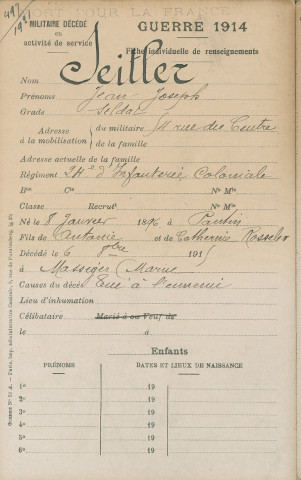 MORT POUR LA FRANCE
MILITAIRE DÉCÉDÉ
en
activité de service
GUERRE 1914
Fiche individuelle de renseignements
Nom Seitler
Prénoms Jean Joseph
Grade Soldat
Adresse à la mobilisation { du militaire 54 rue du Centre
de la famille
Adresse actuelle de la famille
Régiment 24e d'Infanterie Coloniale
Bon Cie No Mle
Classe Recrut No Mle
Né le 8 Janvier 1896 à Pantin
Fils de Antoine et de Catherine Rosseler
Décédé le 6 8bre 1915
à Massiges (Marne
Causes du décès Tué à l'ennemi
Lieu d'inhumation
Célibataire Marié à ou Veuf de
le à
Enfants
PRÉNOMS DATES ET LIEUX DE NAISSANCE
1o 19
2o 19
3o 19
4o 19
5o 19
6o 19